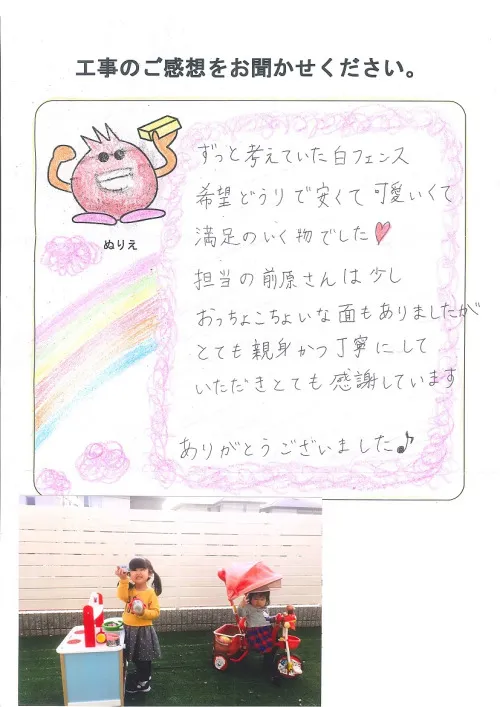 工事のご感想をお聞かせください。
ぬりえ
ずっと考えていた白フェンス
希望どうりで安くて可愛いくて
満足のいく物でした
担当の前原さんは少し
おっちょこちょいな面もありましたが
とても親身かつ丁寧にして
いただきとても感謝しています
ありがとうございました♪